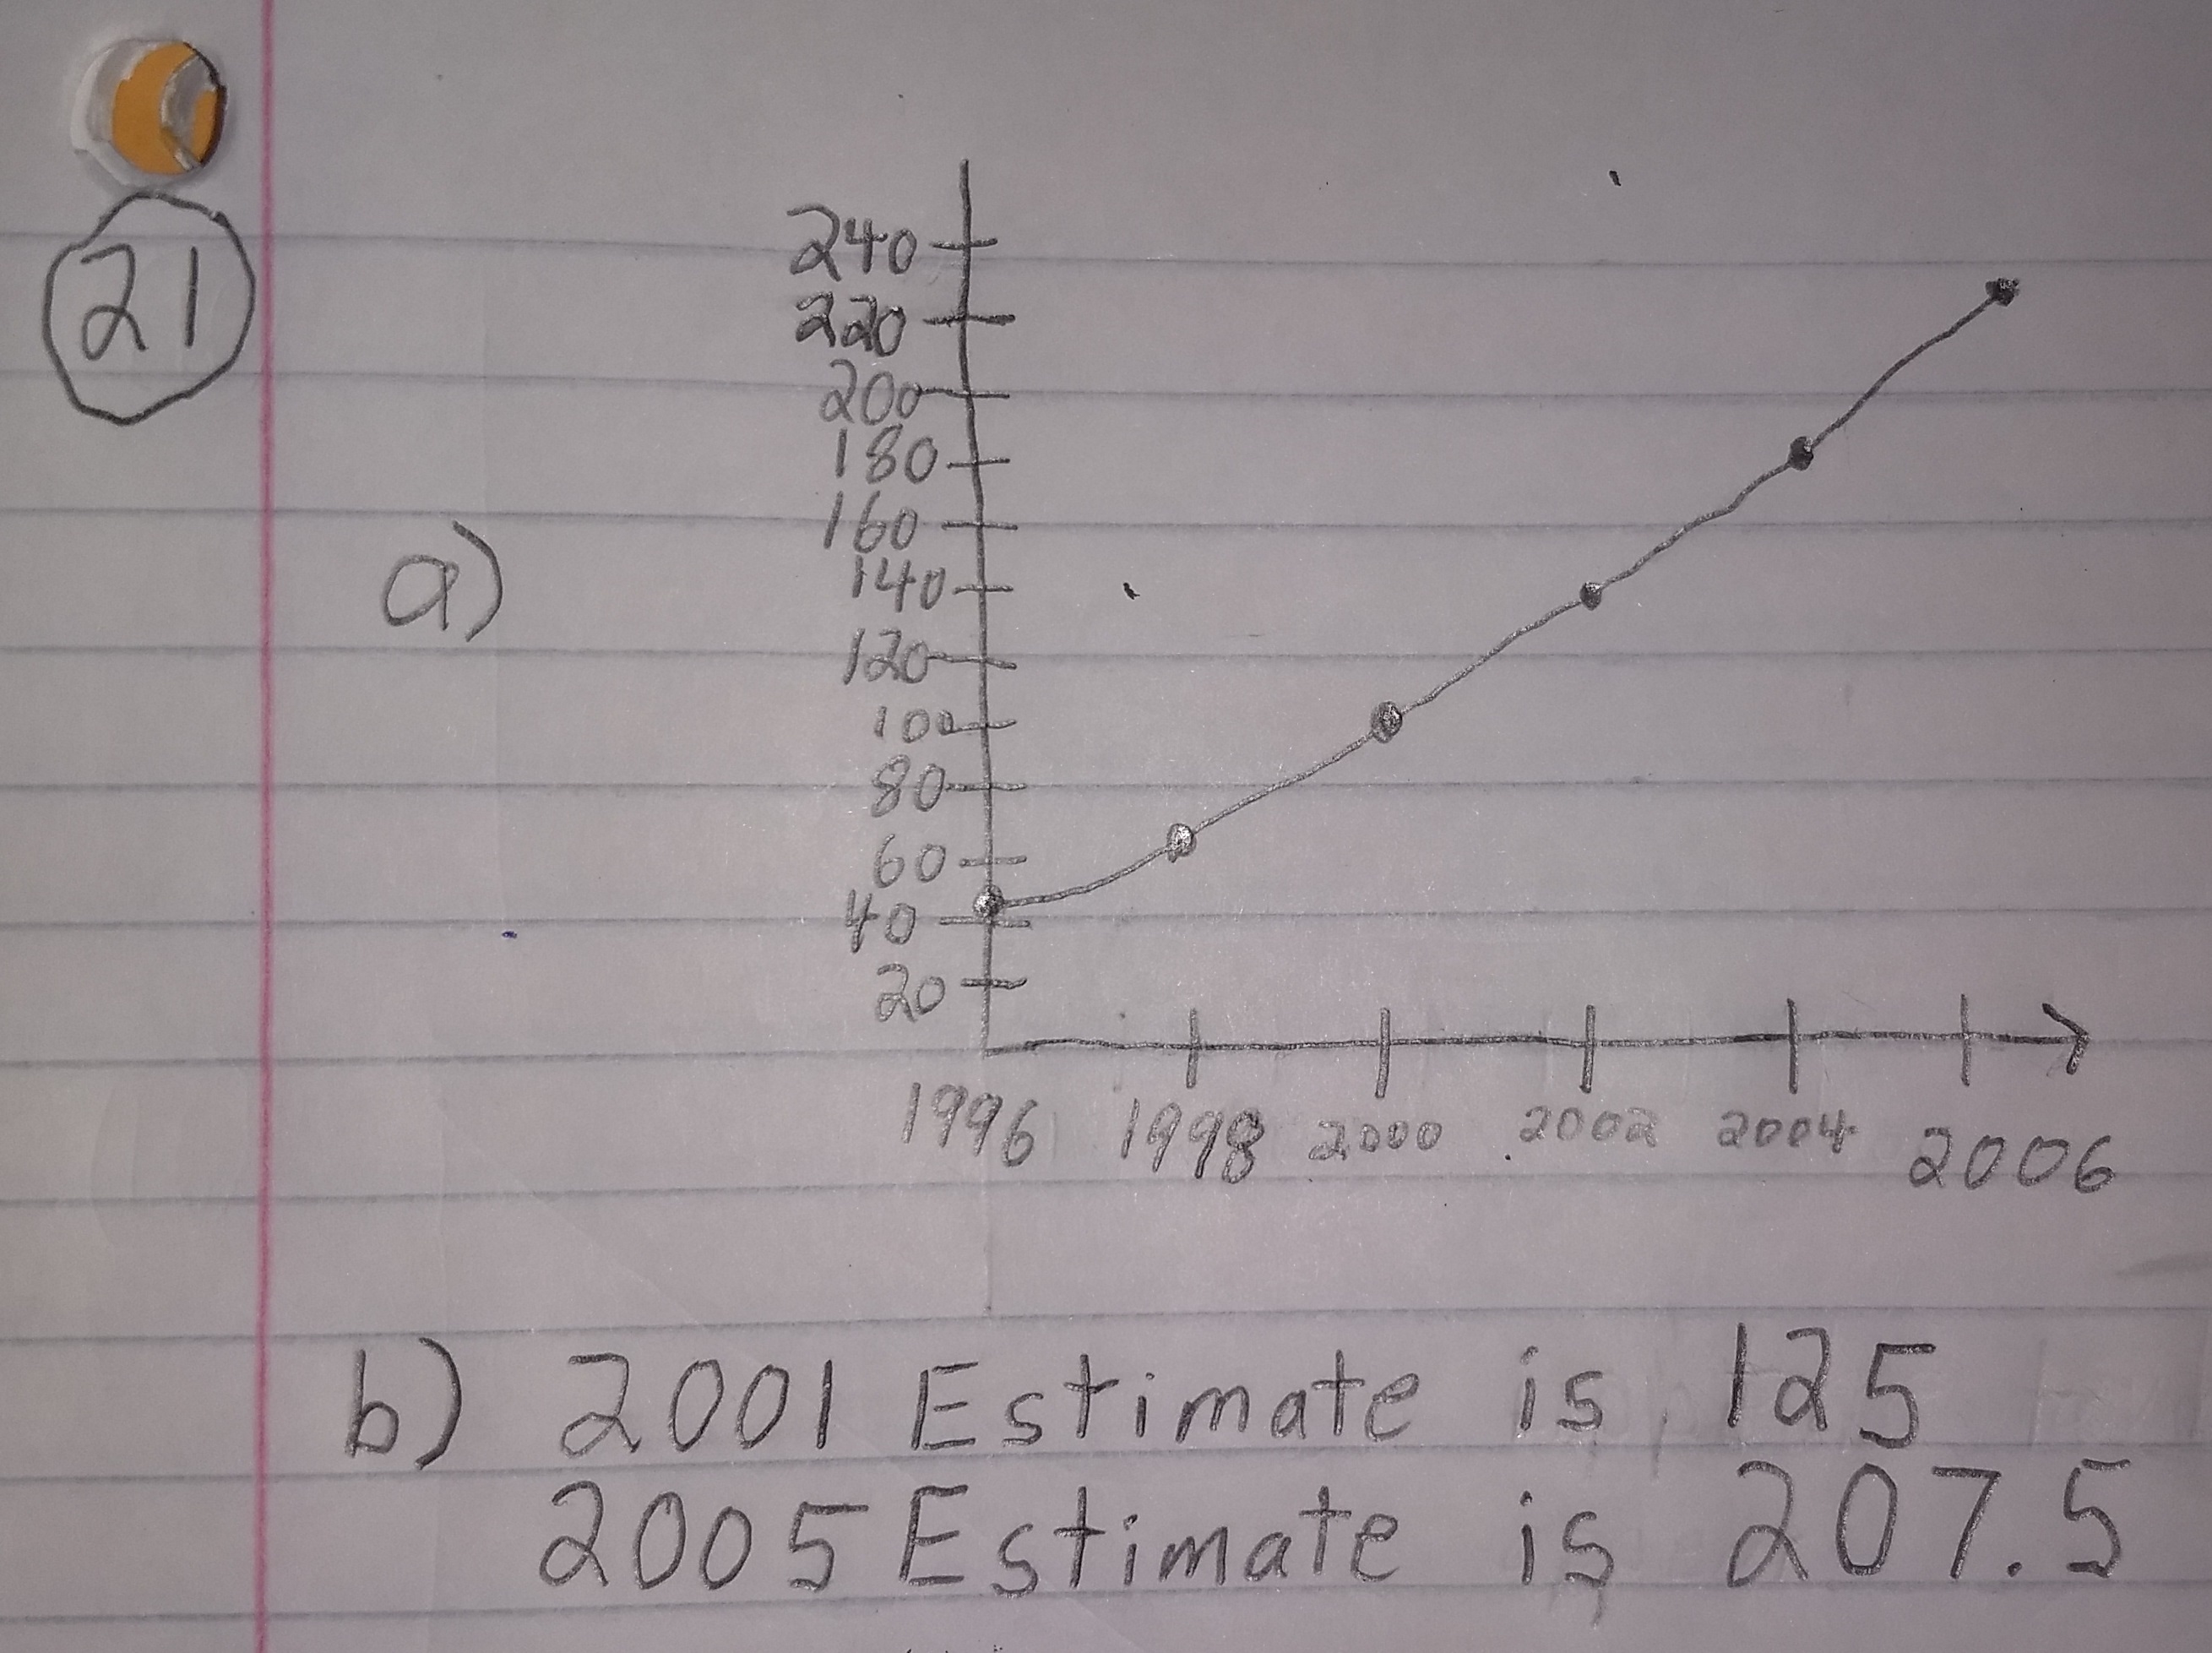 21
a)
240
220
200
180
160
140
120
100
80
60
40
20
1996 1998 2000 2002 2004 2006
b) 2001 Estimate is 125
2005 Estimate is 207.5